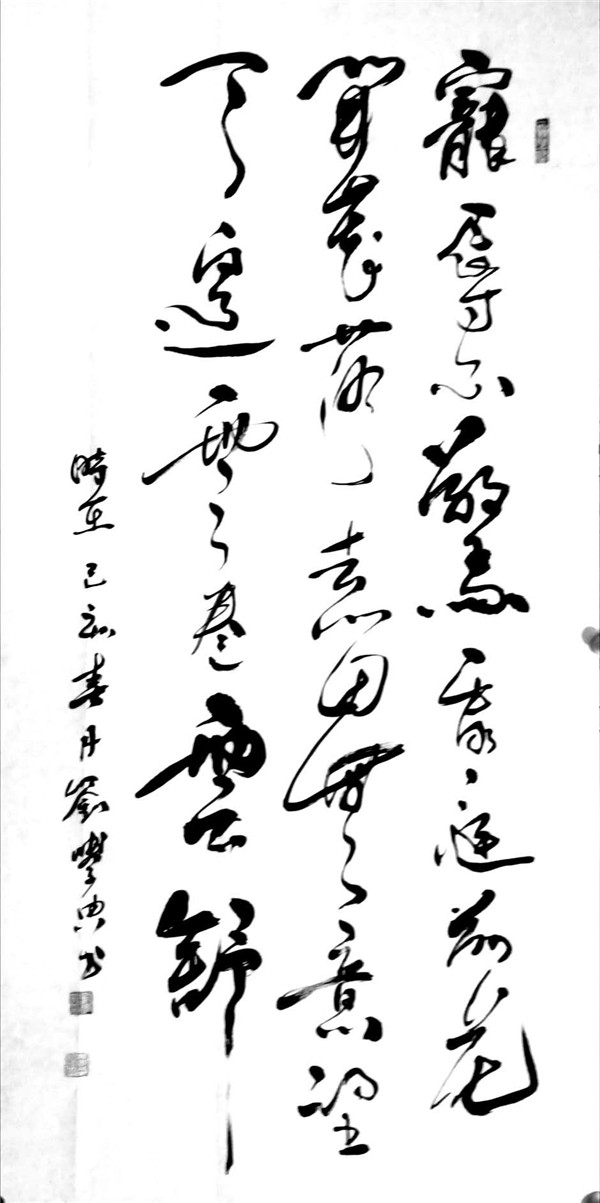 寵辱不驚看庭前花
開花落去留無意望
天邊雲卷雲舒
時在己亥春月劉學典书